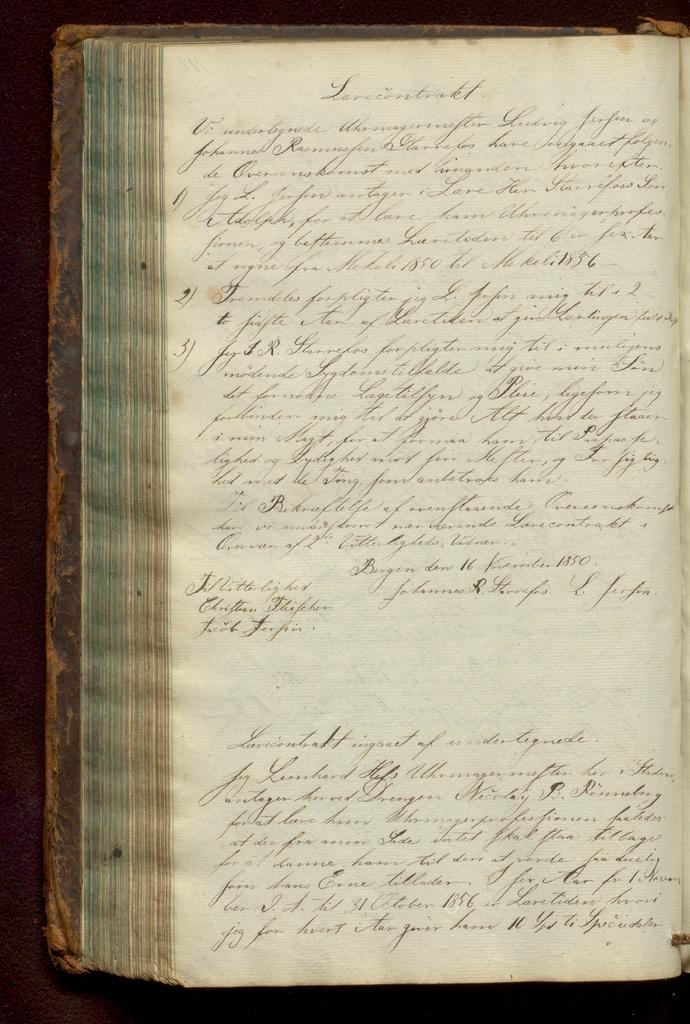 Lærecontrakt.
Vi undertegnede Uhrmagermester Ludvig Jersin og
Johannes Rasmussen Starrefos have indgaaet følgen-
de Overeenskomst med hinanden hvorefter
1) Jeg L. Jersin antager i Lære Hr. Starrefoss Søn
Adolph, for at lære ham Uhrmagerprofes-
sionen, og bestemmes Læretiden til 6 er sex Aar
at regne fra Mikeli 1850 til Mikeli 1856
2) Fremdeles forpligter jeg L. Jersin mig til i 2
sidste Aar af Læretiden at give Lærlingen
3) Jeg J. R. Starrefos forpligter mig til i muligens
mødende Sygdomstilfælde at give min Søn
det fornødne Lægetilsyn og Pleie, ligesom jeg
forbinder mig til at gjöre Alt hvad der staaer
i min Magt, for at formaa ham til
lighed og Lydighed mod sin Mester, og Forsigtig-
hed med de Ting, som anbetroes ham.
Til Bekræftelse af ovenstaaende Overeenskomst
have vi underskrevet nærværende Lærecontrakt i
Overvær af 2de Vitterligheds-Vidner.
Bergen den 16 November 1850.
Til Vitterlighed Johannes R. Starrefos. L. Jersin.
Christian Fleischer
Jacob Jersin.
Lærecontrakt ingaaet af undertegnede.
Jeg Leonhard Hess Uhrmagermester her i Staden,
antager herved Drengen Nicolay B. Rönneberg
for at lære ham Uhrmagerprofessionen saaledes
at der fra min Side intet skal staa tilbage
for at danne ham til deri at vorde saa duelig
som hans Evne tillader. sex Aar fr 1 Novem-
ber D. A. til 31 October 1856 er Læretiden hvori
jeg for hvert Aar giver ham 10 ti Speciedaler